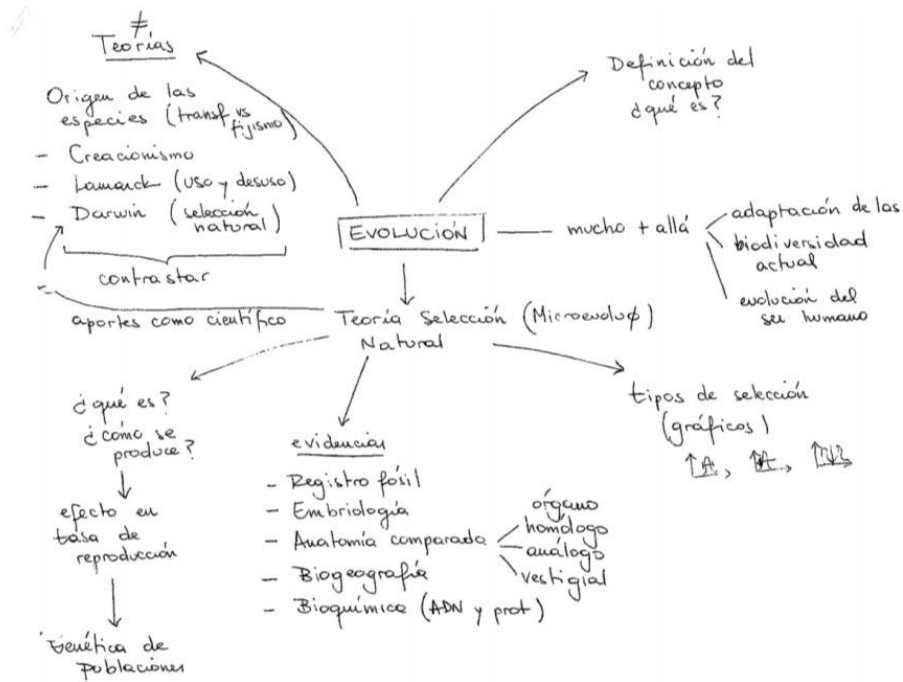 ≠
Teorías
Origen de las
especies (transf vs
fijismo)
- Creacionismo
- Lamarck (uso y desuso)
- Darwin (selección
natural)
contrastar
aportes como científico
Definición del
concepto
¿qué es?
EVOLUCIÓN
mucho + allá
adaptación de las
biodiversidad
actual
evolución del
ser humano
Teoría Selección (Microevoluφ)
Natural
¿qué es?
¿cómo se
produce?
efecto en
tasa de
reproducción
Genética de
poblaciones
evidencias
- Registro fósil
- Embriología
- Anatomía comparada
órgano
homólogo
análogo
vestigial
- Biogeografía
- Bioquímica (ADN y prot)
tipos de selección
(gráficos)